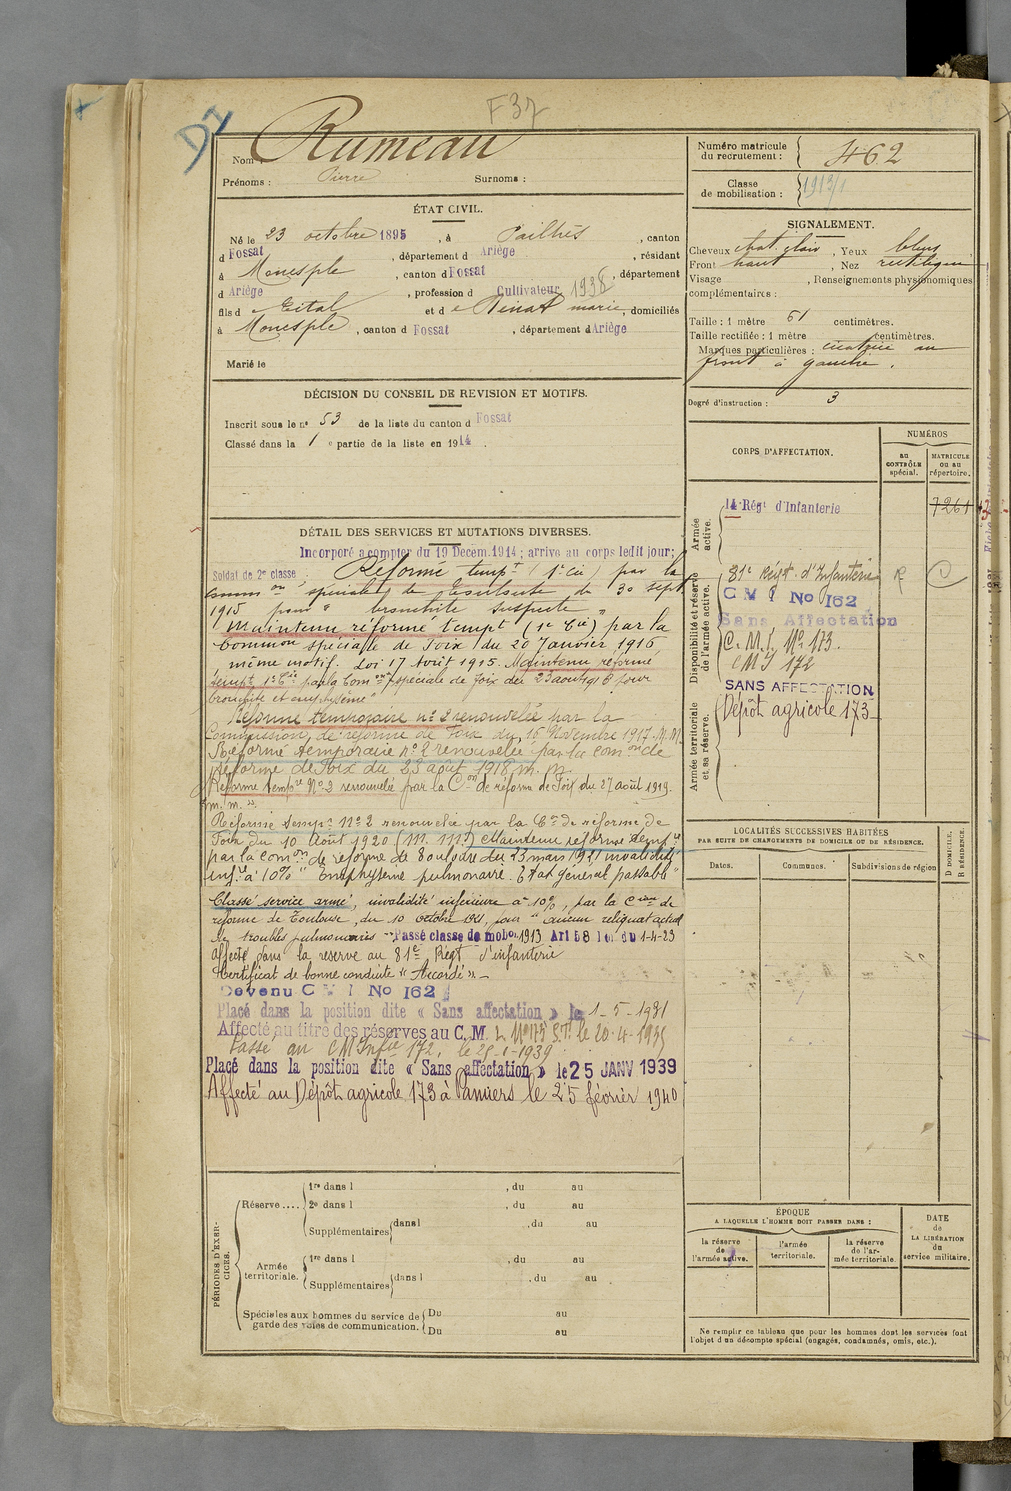 F37
D7
Nom : Rumeau
Prénoms : Pierre Surnoms :
ÉTAT CIVIL.
Né le 23 octobre 1895, à Pailhès, canton
d Fossat, département d Ariège, résidant
à Monesple, canton d Fossat, département
d Ariège, profession d Cultivateur 1938
fils d et d e marie, domiciliés
à Monesple, canton d Fossat, département d Ariège
Marié le
DÉCISION DU CONSEIL DE REVISION ET MOTIFS.
Inscrit sous le no 53 de la liste du canton d Fossat
Classé dans la 1 e partie de la liste en 1914.
DÉTAIL DES SERVICES ET MUTATIONS DIVERSES.
Incorporé à compter du 19 Decem. 1914 ; arrivé au corps ledit jour;
Soldat de 2e classe. Réformé tempt (1e Cie) par la
Common spéciale de du 30 Sept.
1915 pour " bronchite suspecte "
Maintenu réformé tempt (1e Cie) par la
Common spéciale de Foix du 20 Janvier 1916
même motif. Loi 17 Août 1915. Maintenu réformé
tempt 1e Cie par la Comon spéciale de Foix du 23 aout 1916 pour
bronchite et emphysème"
Réforme temporaire no 2 renouvelée par la
Commission de réforme de Foix du 16 Novembre 1917. M. M.
Réformé temporaire no 2 renouvelée par la comon de
réforme de Foix du 23 août 1918 m. m.
Réforme tempre No 2 renouvelée par la Con de réforme de Foix du 27 août 1919.
m. m.
Réforme tempre No 2 renouvelée par la Con de réforme de
Foix du 10 Août 1920 (M. M.) Maintenu réformé tempre
par la comon de réforme de Toulouse du 23 mars 1921 invalidité
infre à 10% " Emphysème pulmonaire. Etat général passable "
Classé service armé, invalidité inférieure à 10%, par la Cion de
réforme de Toulouse, du 10 octobre 1921, pour " aucun reliquat actuel
de troubles pulmonaires " Passé classe de mobon 1913 Art 58 Loi du 1-4-23
affecté dans la réserve au 81e Régt d'infanterie
Certificat de bonne conduite « Accordé » -
Devenu C M I No 162
Placé dans la position dite « Sans affectation » le 1-5-1931
Affecté au titre des réserves au C. M. I. No 173 S.T. le 20-4-1935
Passé au C M Infie 172, le 25-1-1939
Placé dans la position dite « Sans affectation » le 25 JANV 1939
Affecté au Dépôt agricole 173 à Pamiers le 25 février 1940
PÉRIODES D'EXERCICES.
Réserve....
1re dans l , du au
2e dans l , du au
Supplémentaires dans l , du au
Armée territoriale.
1re dans l , du au
Supplémentaires dans l , du au
Spéciales aux hommes du service de garde des voies de communication.
Du au
Du au
Numéro matricule du recrutement : 462
Classe de mobilisation : 1913/1
SIGNALEMENT.
Cheveux chat. clair, Yeux bleus
Front haut, Nez rectiligne
Visage , Renseignements physionomiques
complémentaires :
Taille : 1 mètre 61 centimètres.
Taille rectifiée : 1 mètre centimètres.
Marques particulières : cicatrice au
front à gauche.
Degré d'instruction : 3
CORPS D'AFFECTATION.
NUMÉROS
au CONTRÔLE spécial.
MATRICULE ou au répertoire.
Armée active.
14e Régt d'Infanterie 7261
Disponibilité et réserve de l'armée active.
81e Régt. d'Infanterie R C
C M I No 162
Sans Affectation
C. M. I. No 173.
C M I 172
SANS AFFECTATION
Armée territoriale et sa réserve.
Dépôt agricole 173
LOCALITÉS SUCCESSIVES HABITÉES
PAR SUITE DE CHANGEMENTS DE DOMICILE OU DE RÉSIDENCE.
Dates. Communes. Subdivisions de région
D DOMICILE.
R RÉSIDENCE.
ÉPOQUE
A LAQUELLE L'HOMME DOIT PASSER DANS :
la réserve de l'armée active.
l'armée territoriale.
la réserve de l'armée territoriale.
DATE de LA LIBÉRATION du service militaire.
Ne remplir ce tableau que pour les hommes dont les services font
l'objet d'un décompte spécial (engagés, condamnés, omis, etc.).